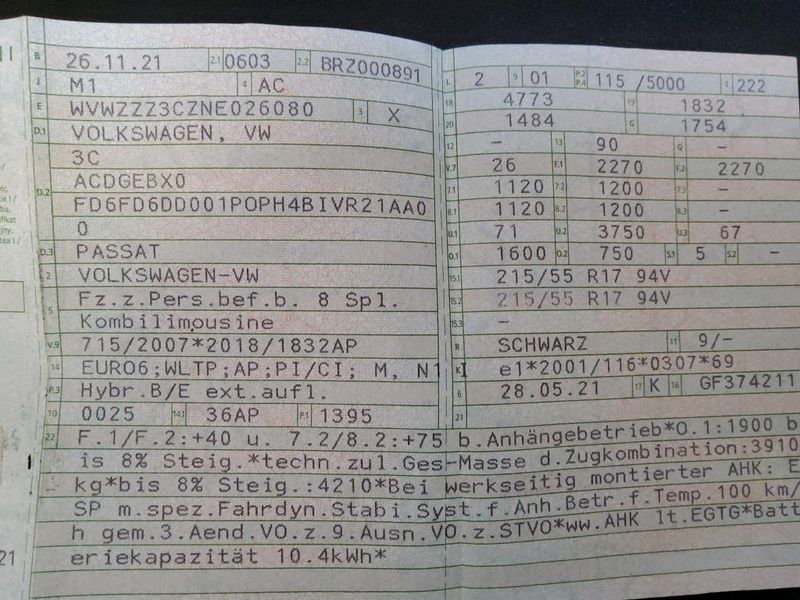 B 26.11.21 2.1 0603 2.2 BRZ000891
J M1 4 AC
E WVWZZZ3CZNE026080 3 X
D.1 VOLKSWAGEN, VW
3C
D.2 ACDGEBX0
FD6FD6DD001POPH4BIVR21AA0
0
D.3 PASSAT
2 VOLKSWAGEN-VW
5 Fz.z.Pers.bef.b. 8 Spl.
Kombilimousine
V.9 715/2007*2018/1832AP
14 EURO6;WLTP;AP;PI/CI; M, N1 I
P.3 Hybr.B/E ext.aufl.
10 0025 14.1 36AP P.1 1395
L 2 9 01 P.2 P.4 115 /5000 T 222
18 4773 19 1832
20 1484 G 1754
12 – 13 90 Q –
V.7 26 F.1 2270 F.2 2270
7.1 1120 7.2 1200 7.3 –
8.1 1120 8.2 1200 8.3 –
U.1 71 U.2 3750 U.3 67
O.1 1600 O.2 750 S.1 5 S.2 –
15.1 215/55 R17 94V
15.2 215/55 R17 94V
15.3 –
R SCHWARZ 11 9/–
K e1*2001/116*0307*69
6 28.05.21 17 K 16 GF374211
21
22 F.1/F.2:+40 u. 7.2/8.2:+75 b.Anhängebetrieb*O.1:1900 b
is 8% Steig.*techn.zul.Ges-Masse d.Zugkombination:3910
kg*bis 8% Steig.:4210*Bei werkseitig montierter AHK: E
SP m.spez.Fahrdyn.Stabi.Syst.f.Anh.Betr.f.Temp.100 km/
h gem.3.Aend.VO.z.9.Ausn.VO.z.STVO*ww.AHK lt.EGTG*Batt
eriekapazität 10.4kWh*